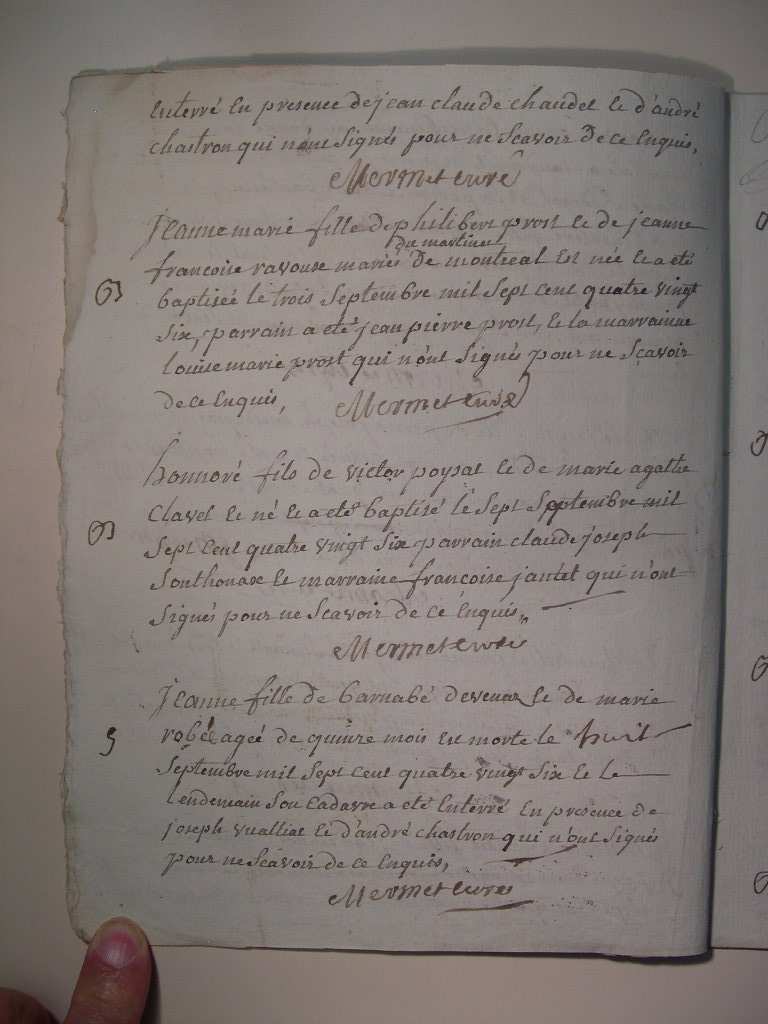 enterré en presence de jean claude chaudet et d'andré
chastron qui n'ont signés pour ne scavoir de ce enquis,
Mermet curé
Jeanne marie fille de philibert prost et de jeanne
du martinet
francoise ravouse mariés de montreal est née et a eté
B
baptiseé le trois septembre mil sept cent quatre vingt
six, parrain a eté jean pierre prost, et la marrainne
louise marie prost qui n'ont signés pour ne sçavoir
de ce enquis,
Mermet curé
honnoré fils de victor poysat et de marie agathe
B
clavel et né et a eté baptisé le sept septembre mil
sept cent quatre vingt six parrain claude joseph
Sonthonax et marraine francoise jantet qui n'ont
signés pour ne scavoir de ce enquis,,
Mermet curé
Jeanne fille de barnabé devenaz et de marie
S
robé ageé de quinze mois est morte le huit
septembre mil sept cent quatre vingt six et le
lendemain son cadavre a eté enterré en presence de
joseph vuilliat et d'andré chastron qui n'ont signés
pour ne scavoir de ce enquis,
Mermet curé